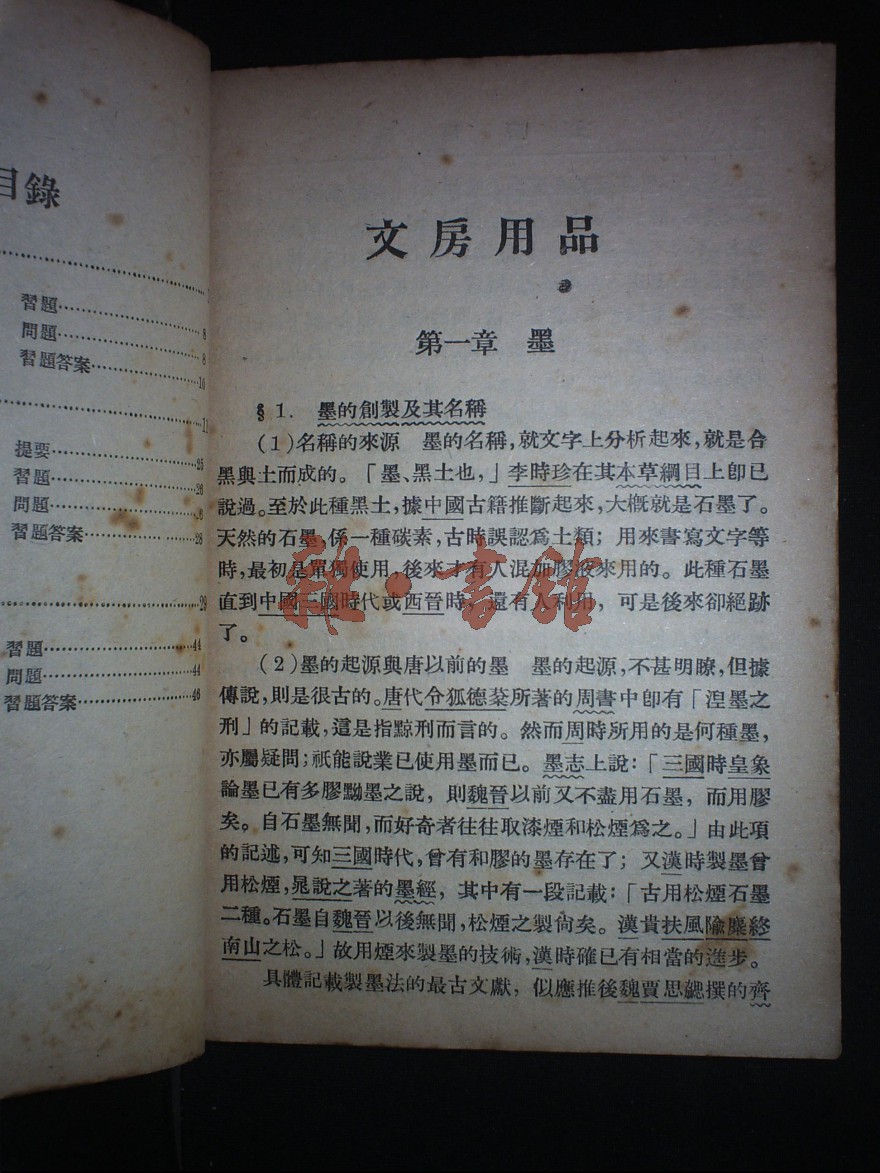 目錄
習題……8
問題……8
習題答案……10
……11
提要……25
習題……26
問題……
習題答案……28
……29
習題……44
問題……44
習題答案……46
文房用品
第一章 墨
§1. 墨的創製及其名稱
(1)名稱的來源 墨的名稱,就文字上分析起來,就是合
黑與土而成的。「墨、黑土也,」李時珍在其本草綱目上卽已
說過。至於此種黑土,據中國古籍推斷起來,大槪就是石墨了。
天然的石墨,係一種碳素,古時誤認爲土類;用來書寫文字等
時,最初是單獨使用,後來才有人混加膠液來用的。此種石墨
直到中國三國時代或西晉時,還有人利用,可是後來卻絕跡
了。
(2)墨的起源與唐以前的墨 墨的起源,不甚明瞭,但據
傳說,則是很古的。唐代令狐德棻所著的周書中卽有「湼墨之
刑」的記載,這是指黥刑而言的。然而周時所用的是何種墨,
亦屬疑問;祇能說業已使用墨而已。墨志上說:「三國時皇象
論墨已有多膠黝墨之說,則魏晉以前又不盡用石墨,而用膠
矣。自石墨無聞,而好奇者往往取漆煙和松煙爲之。」由此項
的記述,可知三國時代,曾有和膠的墨存在了;又漢時製墨曾
用松煙,晁說之著的墨經,其中有一段記載:「古用松煙石墨
二種。石墨自魏晉以後無聞,松煙之製尙矣。漢貴扶風隃麋終
南山之松。」故用煙來製墨的技術,漢時確已有相當的進步。
具體記載製墨法的最古文獻,似應推後魏賈思勰撰的齊
雜·書館